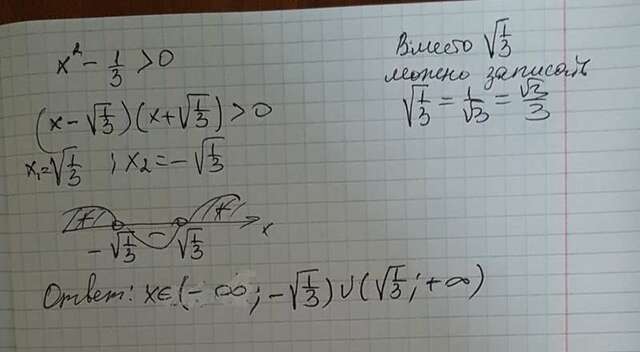 x² - 1/3 > 0
(x - √1/3)(x + √1/3) > 0
x₁ = √1/3 ; x₂ = -√1/3
+ - + x
-√1/3 √1/3
Ответ: x∈(-∞; -√1/3)∪(√1/3; +∞)
Вместо √1/3
можно записать
√1/3 = 1/√3 = √3/3